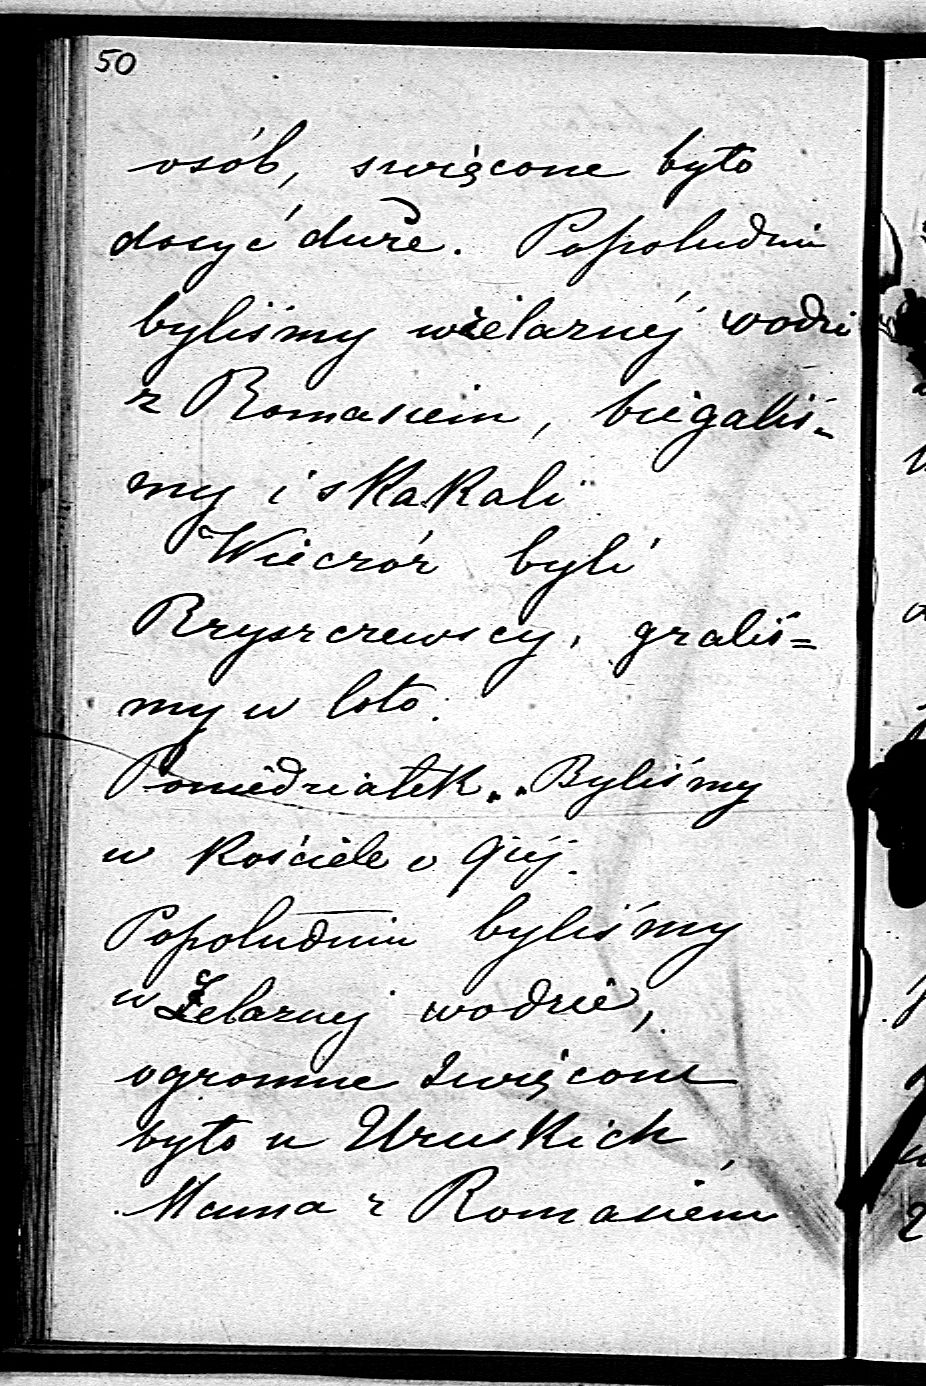 50
osób, swięcone było
dosyć duże. Popołudniu
byliśmy w żelaznéj wodzie
z Romasiem, biegaliś-
my i skakali
Wieczór byli
Bryszczewscy, graliś=
my w loto.
Poniedziałek. Byliśmy
w Kościele o 9iéj.
Popołudniu byliśmy
w Żelaznej wodzie,
ogromne święcone
było u Uruskich
Mama z Romasiem